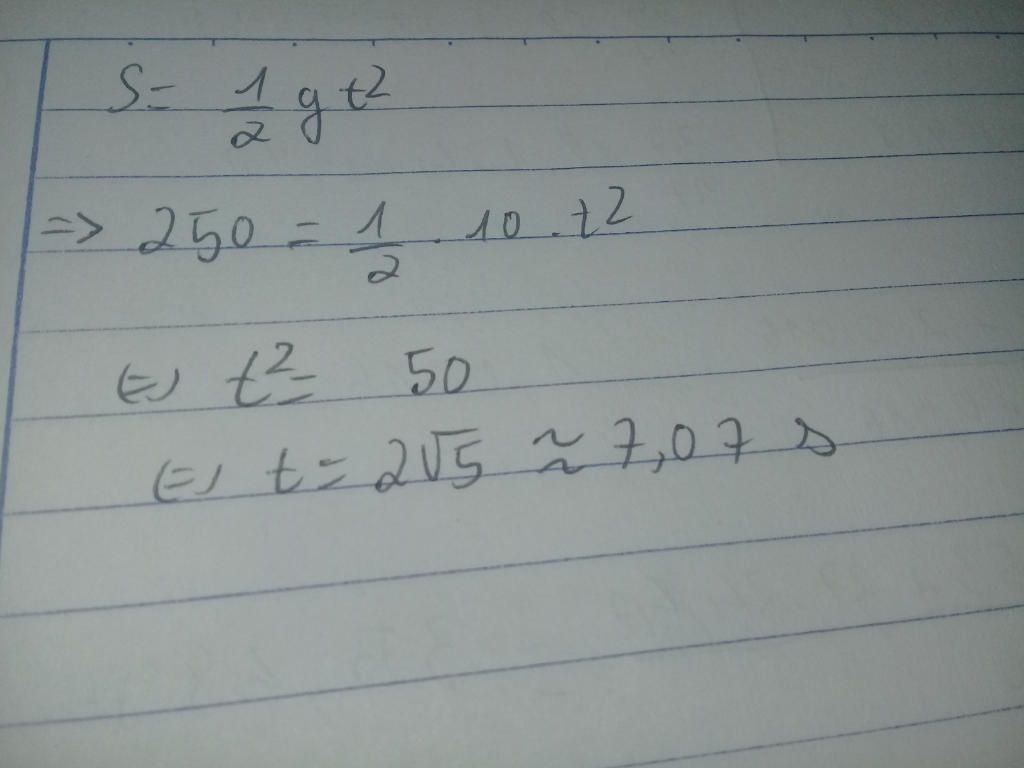 S = 1/2 g t²
=> 250 = 1/2 . 10 . t²
<=> t² = 50
<=> t = 2√5 ≈ 7,07 s